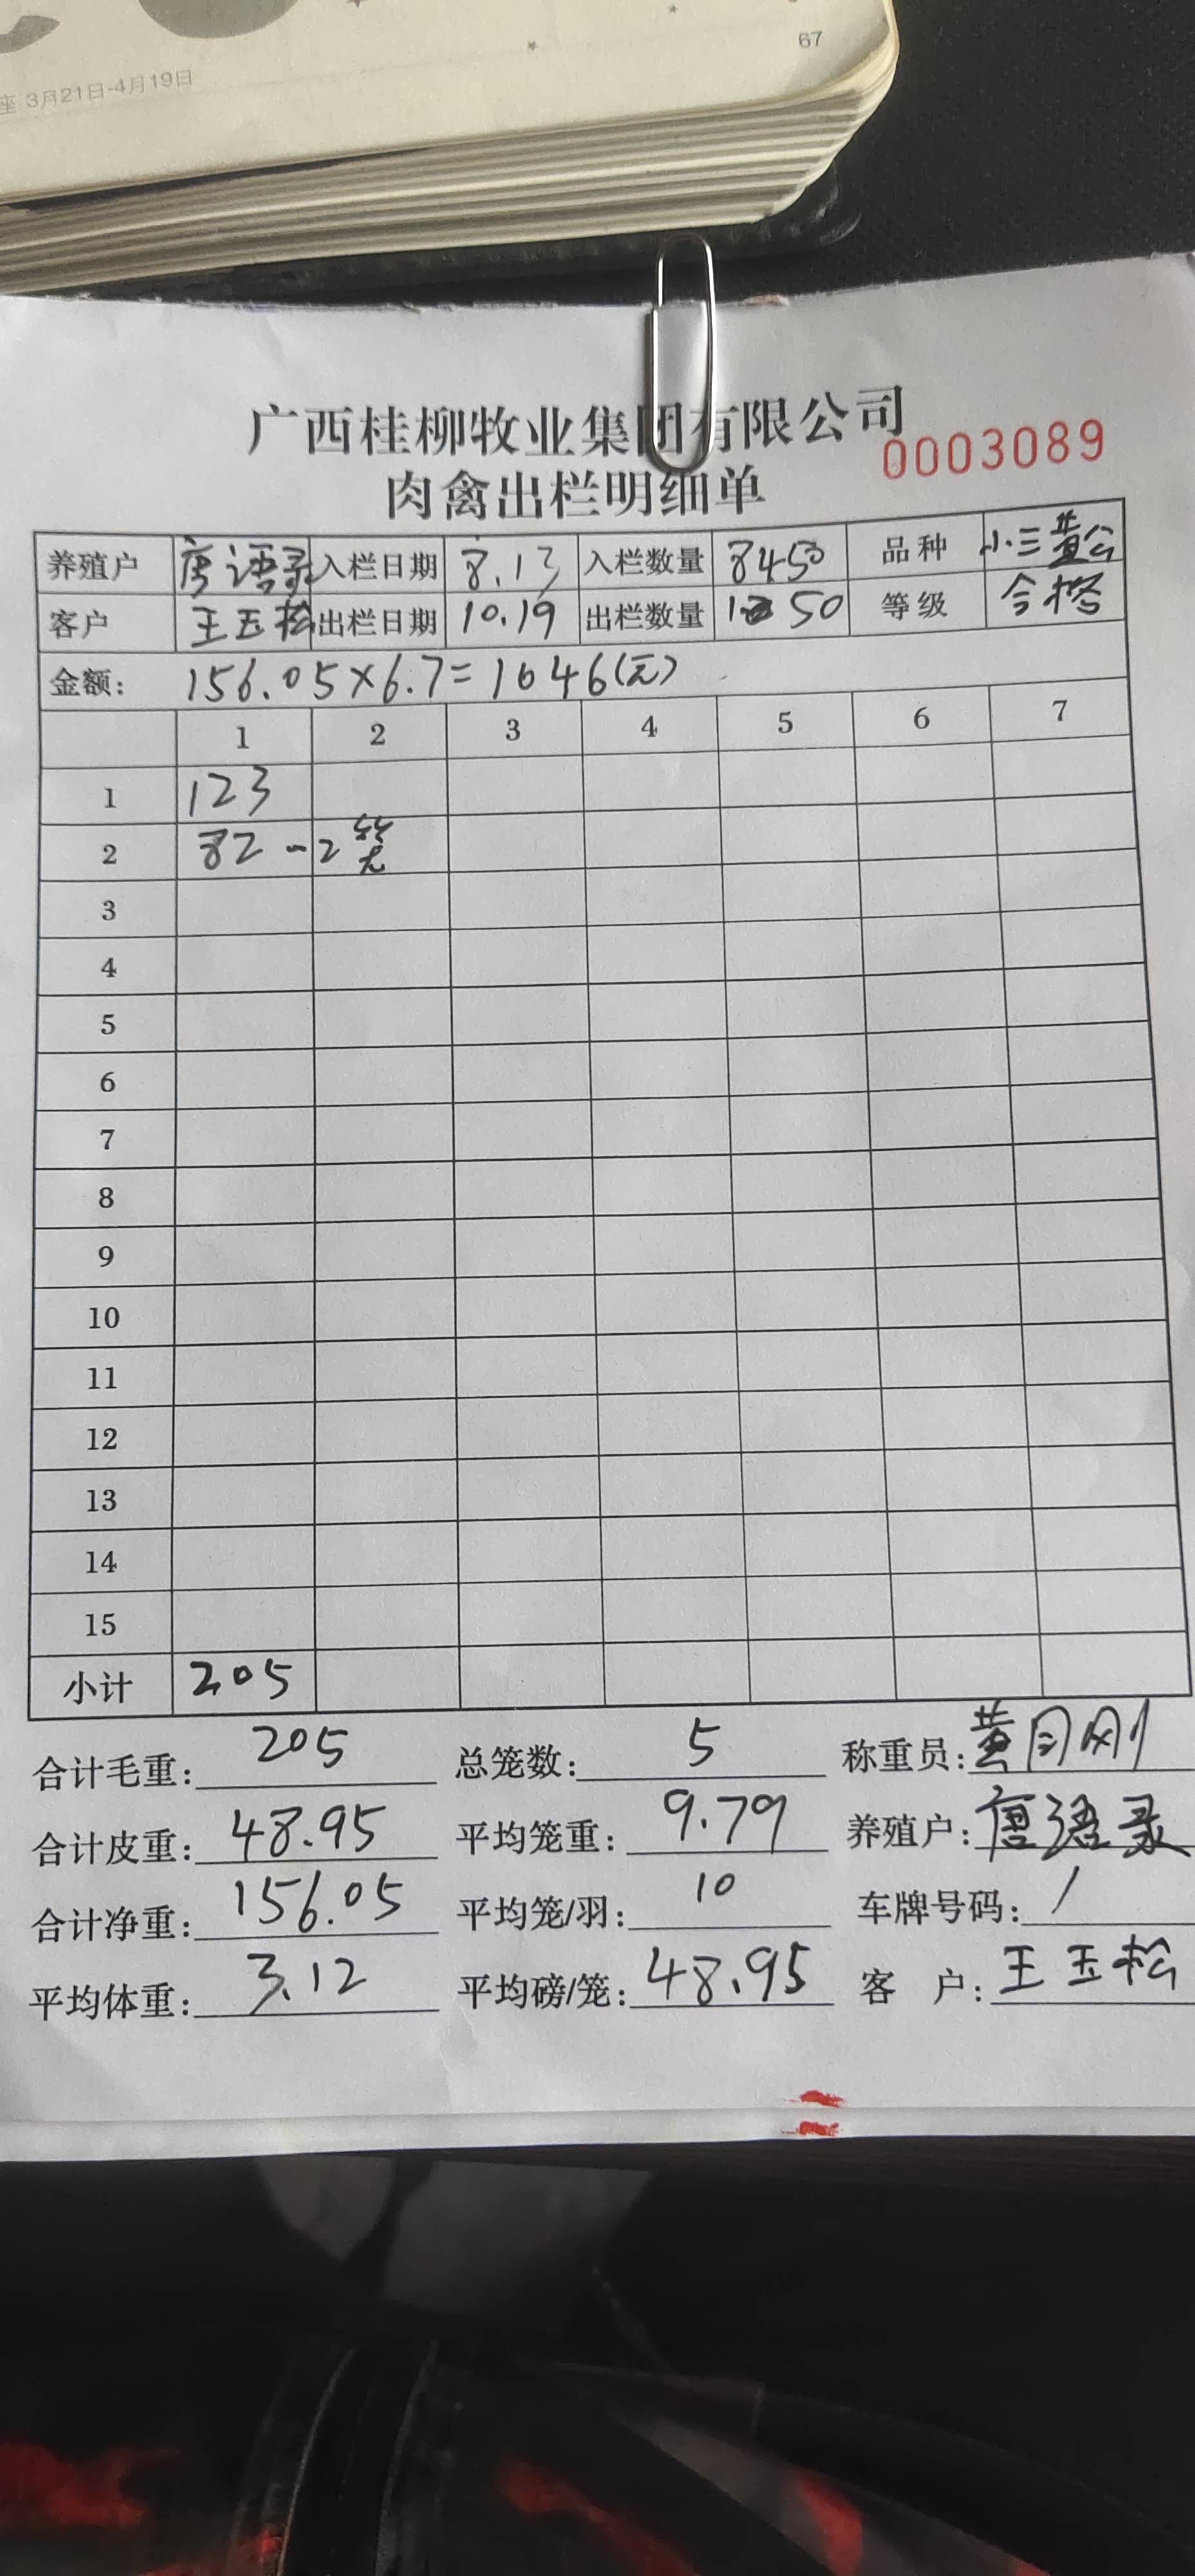 67
座 3月21日-4月19日
广西桂柳牧业集团有限公司
0003089
肉禽出栏明细单
养殖户 唐语录 入栏日期 8.13 入栏数量 8450 品种 小三黄公
客户 王玉松 出栏日期 10.19 出栏数量 50 等级 合格
金额: 156.05×6.7=1046(元)
1 2 3 4 5 6 7
1 123
2 82-2笼
3
4
5
6
7
8
9
10
11
12
13
14
15
小计 205
合计毛重: 205 总笼数: 5 称重员: 黄日刚
合计皮重: 48.95 平均笼重: 9.79 养殖户: 唐语录
合计净重: 156.05 平均笼/羽: 10 车牌号码: /
平均体重: 3.12 平均磅/笼: 48.95 客 户: 王玉松